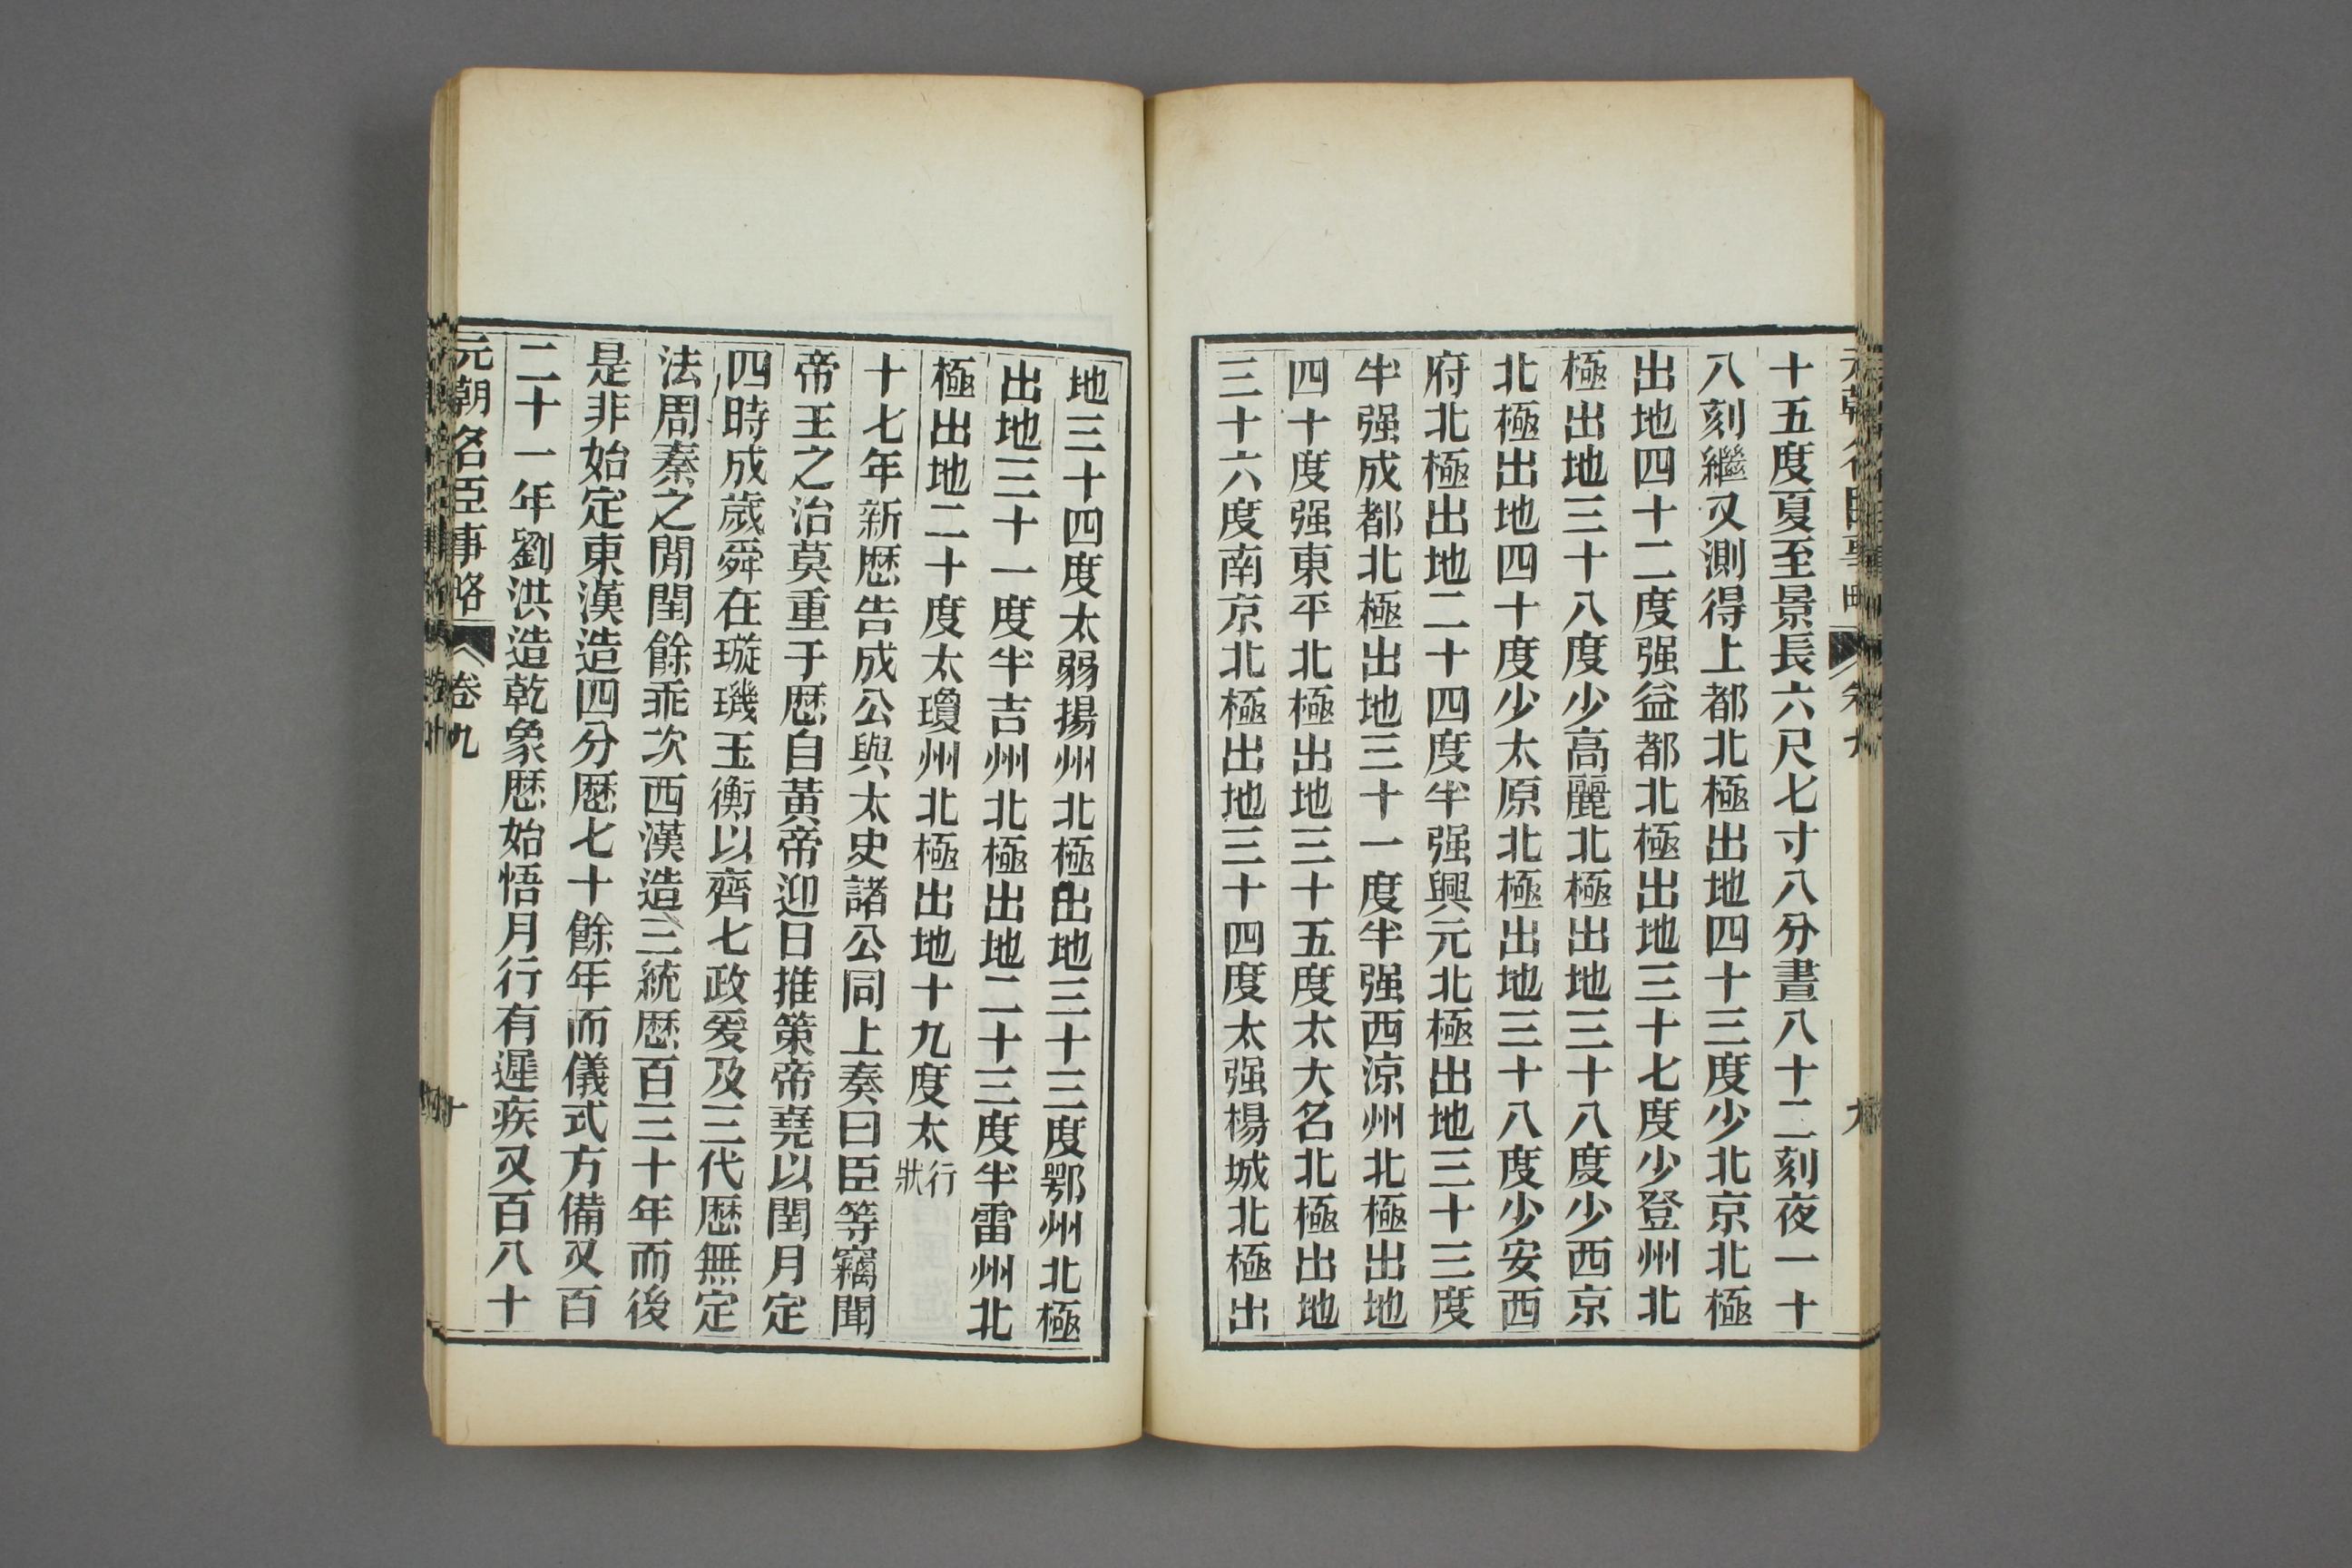 十五度夏至景長六尺七寸八分晝八十二刻夜一十
八刻繼又測得上都北極出地四十三度少北京北極
出地四十二度强益都北極出地三十七度少登州北
極出地三十八度少高麗北極出地三十八度少西京
北極出地四十度少太原北極出地三十八度少安西
府北極出地二十四度半强興元北極出地三十三度
半强成都北極出地三十一度半强西涼州北極出地
四十度强東平北極出地三十五度太大名北極出地
三十六度南京北極出地三十四度太强楊城北極出
地三十四度太弱揚州北極出地三十三度鄂州北極
出地三十一度半吉州北極出地二十三度半雷州北
極出地二十度太瓊州北極出地十九度太行狀
十七年新厯告成公與太史諸公同上奏曰臣等竊聞
帝王之治莫重于厯自黃帝迎日推策帝堯以閏月定
四時成歲舜在璇璣玉衡以齊七政爰及三代厯無定
法周秦之閒閏餘乖次西漢造三統厯百三十年而後
是非始定東漢造四分厯七十餘年而儀式方備又百
二十一年劉洪造乾象厯始悟月行有遲疾又百八十
元朝名臣事略 卷九 十